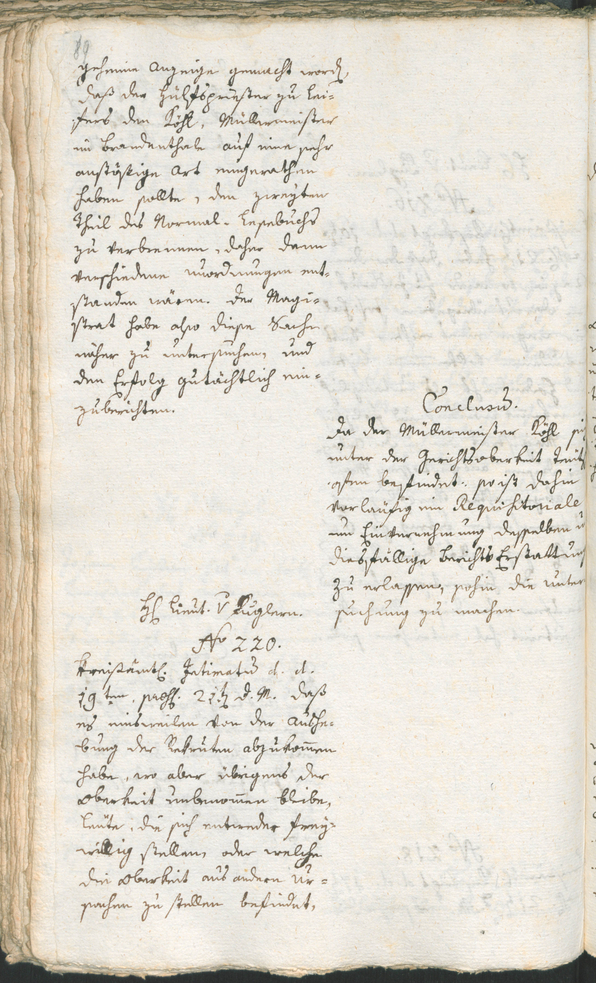 89
geheime Anzeige gemacht word,
daß der Hülfspriester zu Lei-
fers den Köhl, Müllermeister
in Brandenthale auf eine sehr
anstößige Art eingerathen
haben sollte, den zweyten
Theil des Normal-Lesebuchs
zu verbrennen, daher dann
verschiedene unordnungen ent-
standen wären. Der Magi-
strat habe also diese Sache
näher zu untersuchen, und
den Erfolg gutächtlich ein-
zuberichten.
Conclusum.
Da der Müllermeister Köhl si
unter der Gerichtsoberkeit
befindet: so ist dahin
vorläufig ein Requisitoriale
um Einvernehmung desselben u
diesfällige Berichts Erstattung
zu erlassen, sohin die unter
suchung zu machen.
H Lieut. v Kuglern.
No 220.
Kreisämtl. Intimatum d. d.
19ten, 21ten d. M. daß
es einsweilen von der Aushe-
bung der Rekruten abzukommen
habe, wo aber übrigens der
Oberkeit unbenommen bleibe,
Leute, die sich entweder frey-
willig stellen, oder welche
die Oberkeit aus andern Ur-
sachen zu stellen befindet,